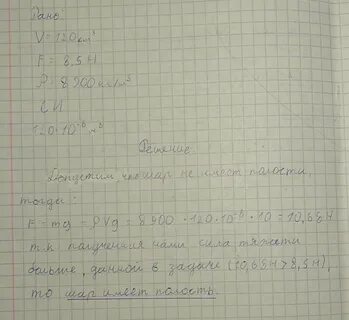 Дано:
V = 120 см³
F = 8,5 Н
ρ = 8900 кг/м³
СИ
120·10⁻⁶ м³
Решение
Допустим, что шар не имеет полости,
тогда:
F = mg = ρVg = 8900 · 120·10⁻⁶ · 10 = 10,68 Н
т.к. полученная нами сила тяжести
больше, данной в задаче (10,68Н > 8,5Н),
то шар имеет полость.